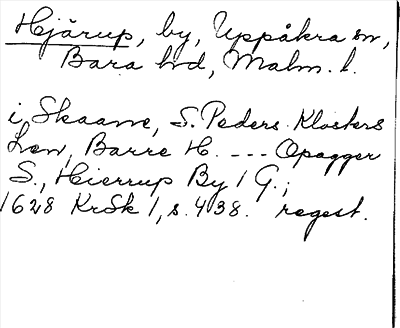 Hjärup, by, Uppåkra sn,
Bara hd, Malm. l.
i Skaane, S. Peders Klosters
Len, Barre H. --- Opagger
S., Hierrup By 1 G.;
1628 KrSk 1, s. 438. regest.